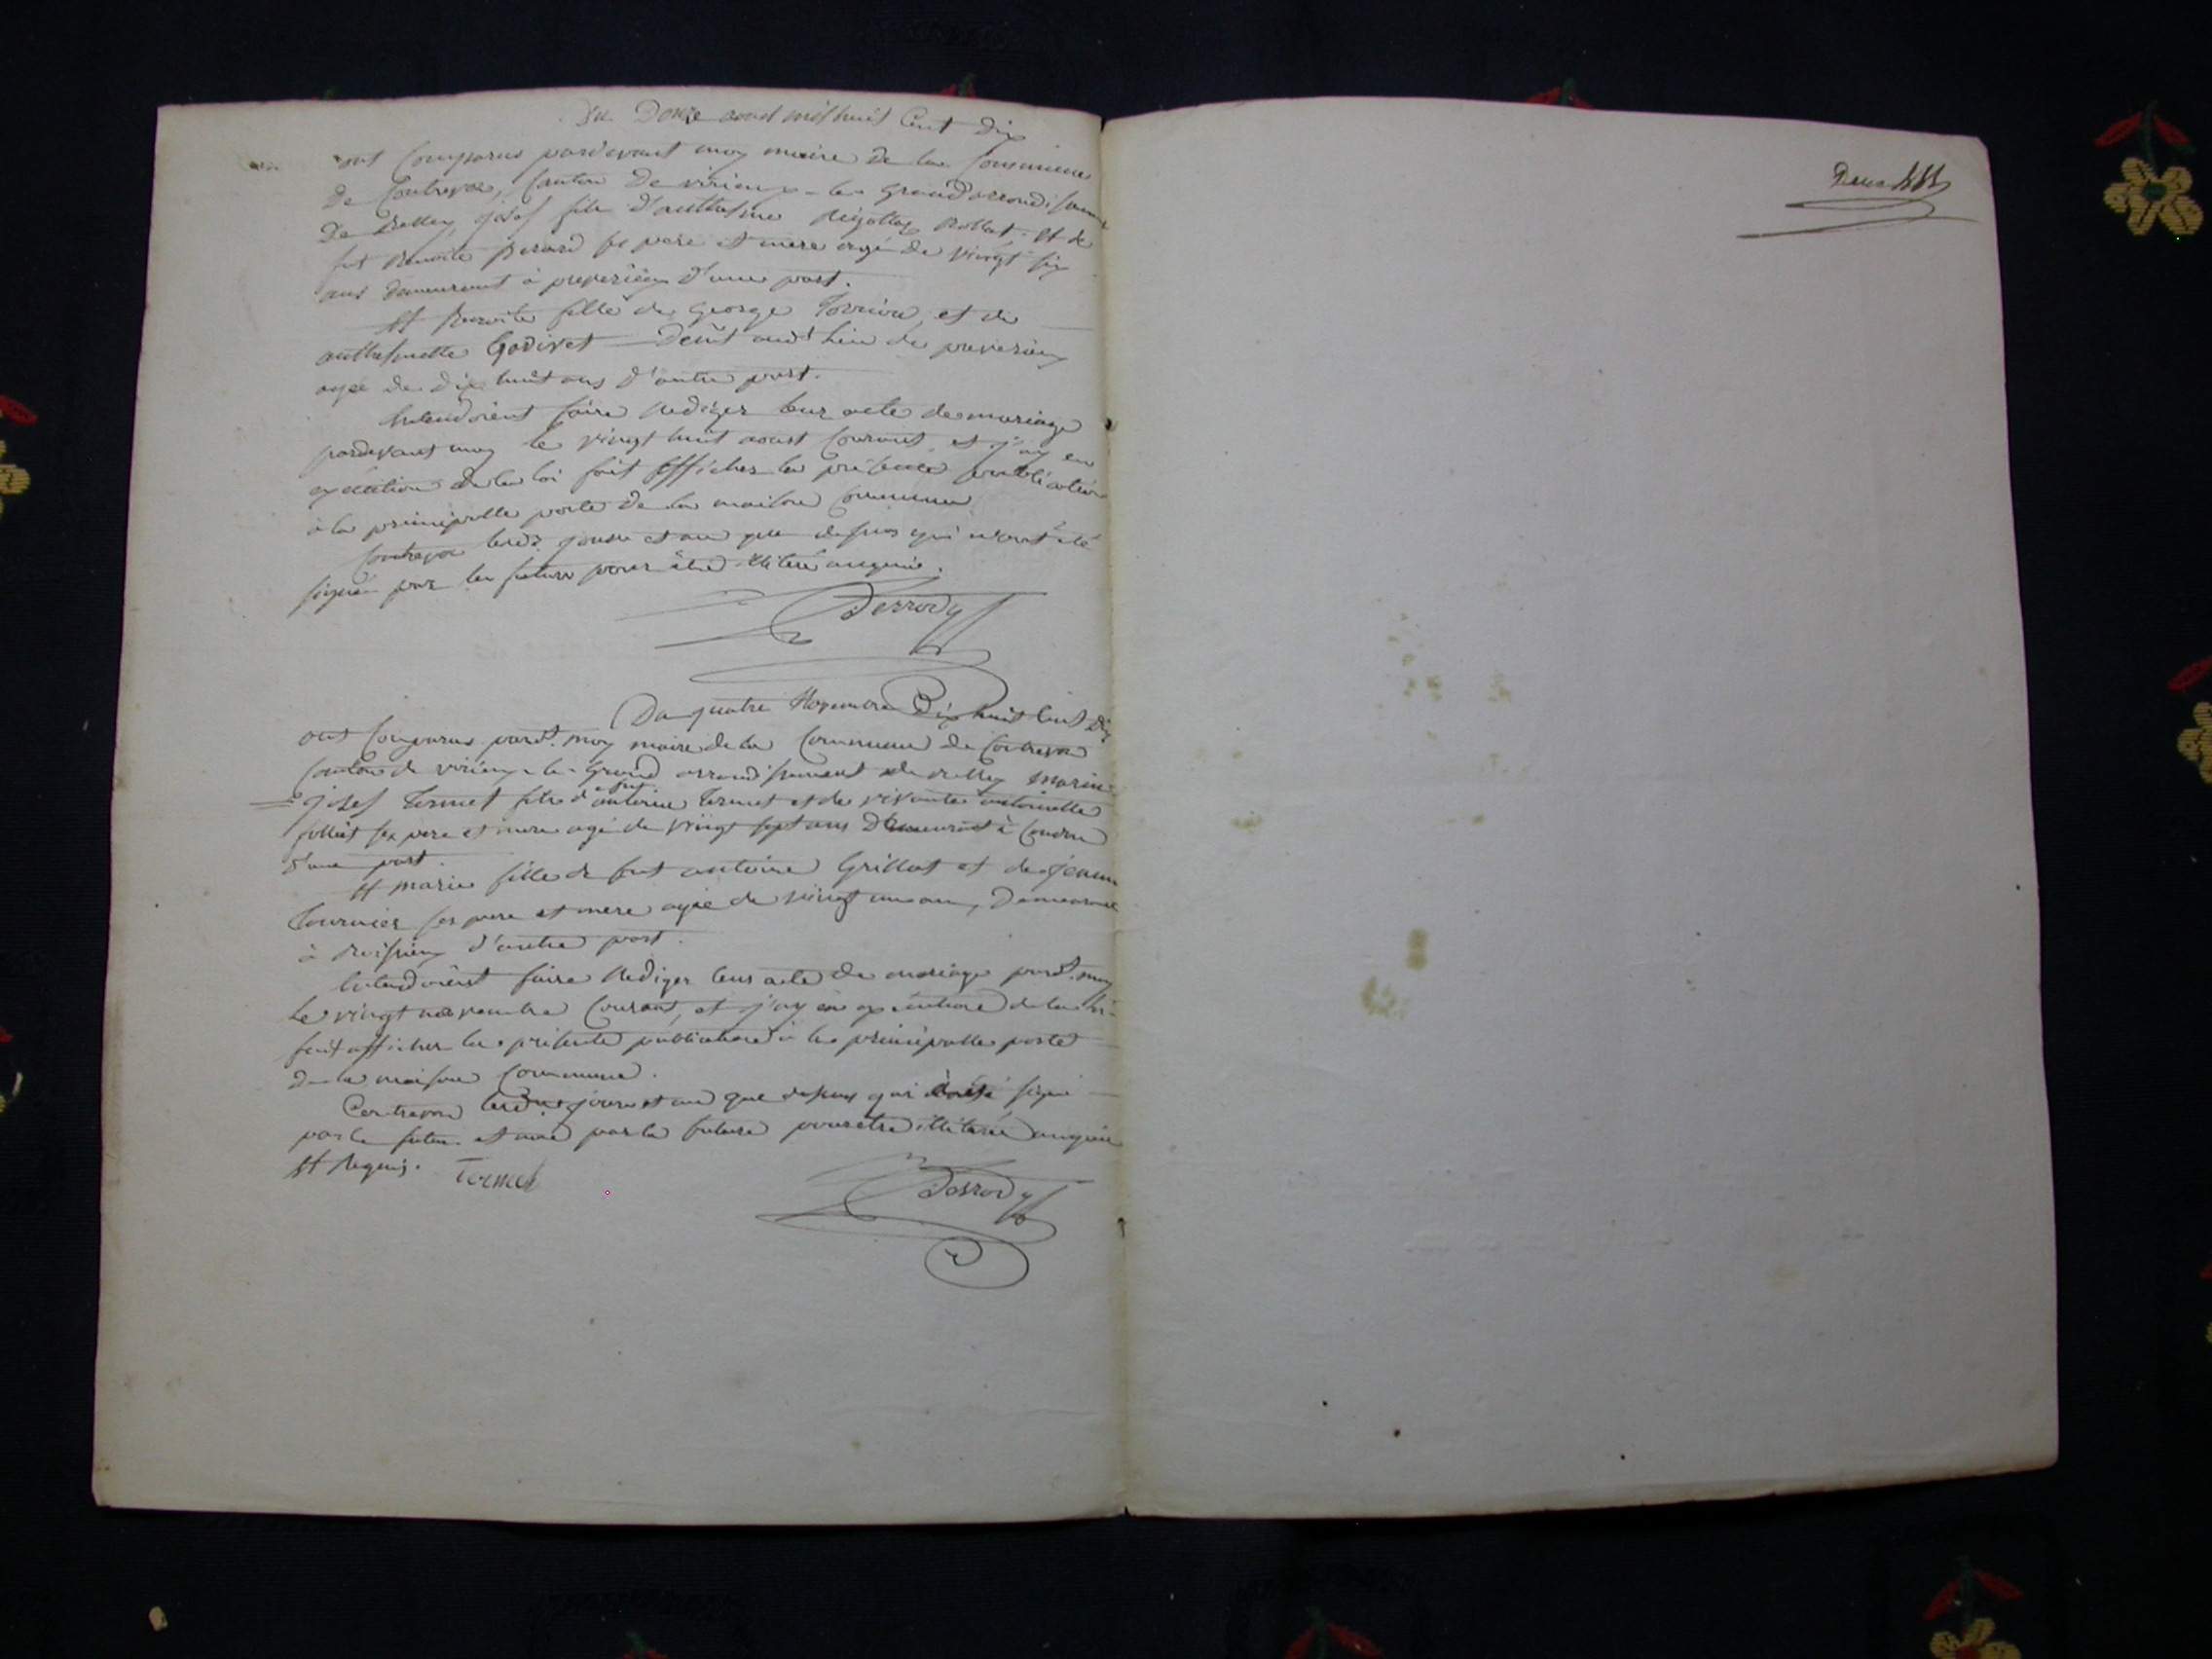 Du Douze aoust mil huit Cent dix
ont Comparus pardevant moy maire de la Commune
de Contrevoz, Canton de virieux-le-Grand arrondissement
De Belley, josef fils d'anthelme Rollat et de
fut benoite berard ses pere et mere agé de vingt six
ans demeurant à preveizieu d'une part.
Et benoite fille de George et de
anthelmette Godivet audt lieu de preveizieu
agée de dix huit ans d'autre part.
Entendoient faire Rediger leur acte de mariage
pardevant moy le vingt huit aoust Courant et j'ay en
execution de la loi fait afficher la présente publication
à la principalle porte de la maison Commune
Contrevoz lesd. jour et an que dessus qui n'ont été
signé par les futurs pour être illiteré enquis.
Desrody
Du quatre Novembre Dix huit Cent dix
ont Comparus pardt. moy maire de la Commune de Contrevoz
Canton de virieux-le-Grand arrondissement de Belley marin
josef Termet fils d'antoine Termet et de vivante antoinette
ses pere et mere agé de vingt sept ans Demeurant à Condon
d'une part.
Et marie fille de fut antoine Grillot et de jeanne
Tournier ses pere et mere agée de vingt un an, Demeurant
à d'autre part.
Entendoient faire Rediger leur acte de mariage pardt. moy
Le vingt novembre Courant, et j'ay en execution de la loi
fait afficher la présente publication à la principalle porte
de la maison Commune.
Contrevoz lesd. jour et an que dessus qui a été signé
par le futur et non par la future pour etre illiterée enquise
Et Requis. Termet
Desrody